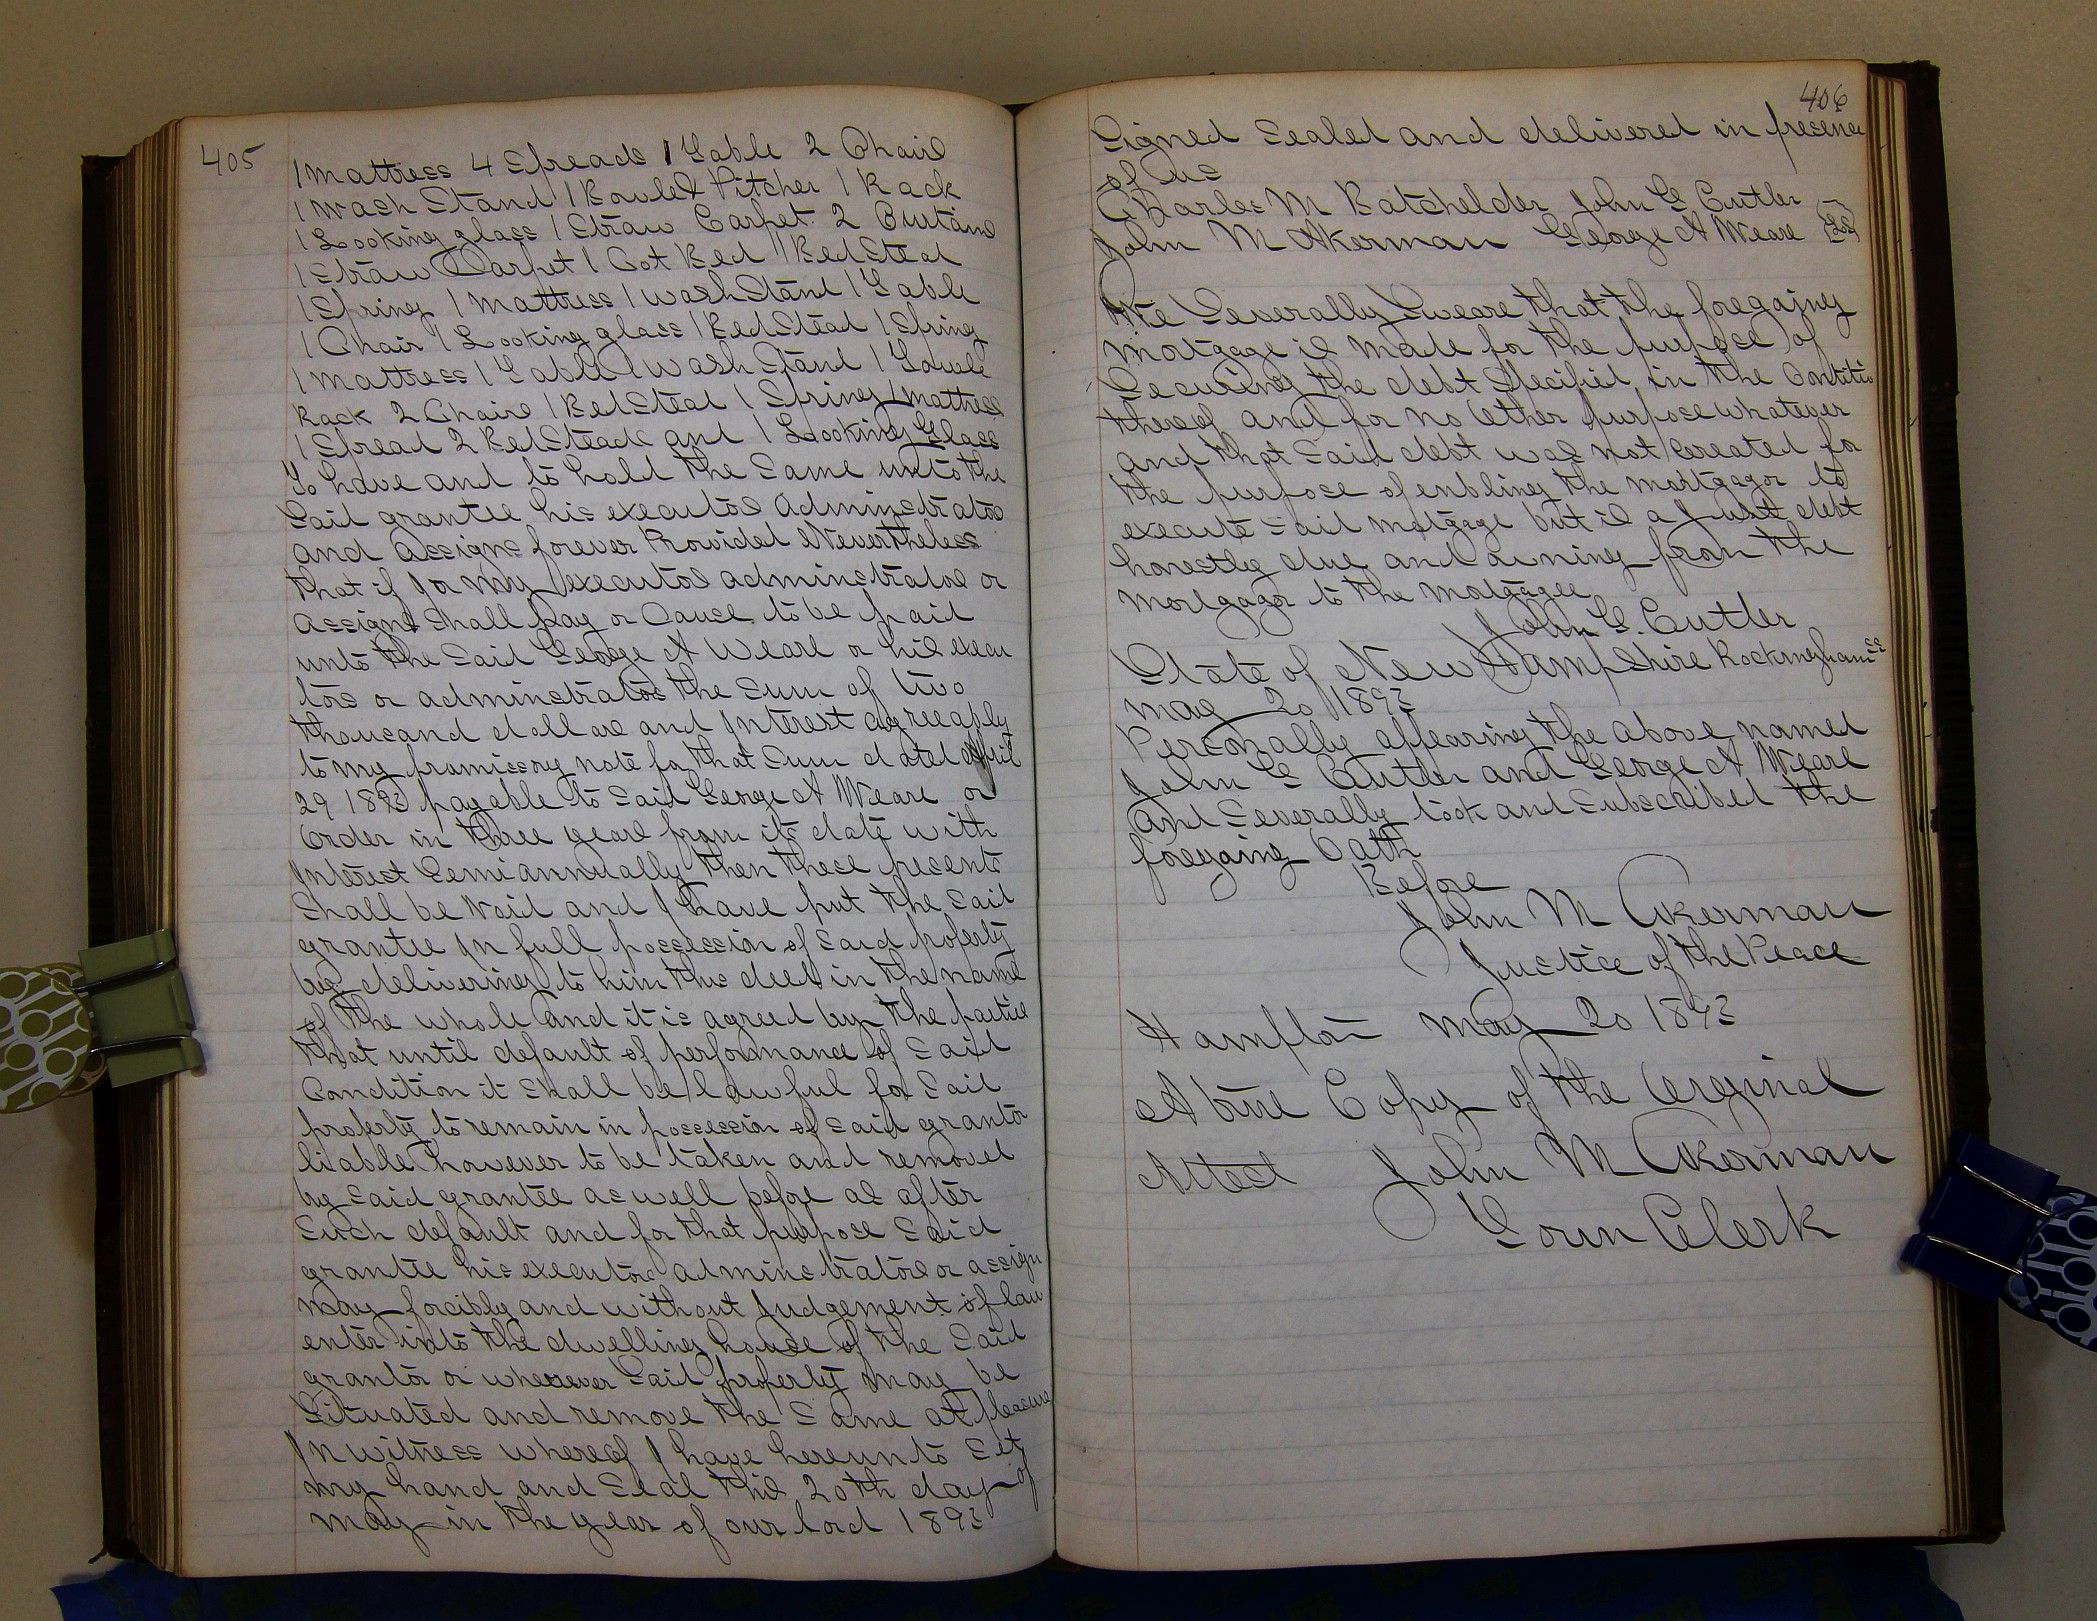 405
1 Mattress 4 Spreads 1 Table 2 Chairs
1 Wash Stand 1 Bowle & Pitcher 1 Rack
1 Looking glass 1 Straw Carpet 2 Curtains
1 Straw Carpet 1 Cot Bed 1 Bed Stead
1 Spring 1 Mattress 1 Wash Stand 1 Table
1 Chair 1 Looking glass 1 Bed Stead 1 Spring
1 Mattress 1 Table 1 Wash Stand 1 Towele
Rack 2 Chairs 1 Bed Stead 1 Spring 1 Mattress
1 Spread 2 Bed Steads and 1 Looking Glass
To have and to hold the Same unto the
Said grantee his executors Adminestrators
and assigns forever Provided Nevertheless
that if I or my executors adminstrators or
assigns Shall pay or Cause to be paid
unto the Said George A Weare or his execu
tors or adminstrators the Sum of two
thousand dollars and Interest agreeably
to my promissory note for that Sum dated April
29 1893 payable to Said George A Weare or
Order in three years from its date with
Interest Semi annually then these presents
Shall be Void and I have put the Said
grantee in full possession of Said property
by delivering to him this deed in the name
of the whole and it is agreed by the parties
that until default of performance of Said
Condition it Shall be lawful for Said
property to remain in possession of Said grantor
liable however to be taken and removed
by Said grantee as well before as after
Such default and for that purpose Said
grantee his executors adminstrators or assigns
may forcibly and without Judgement of law
enter into the dwelling house of the Said
grantor or wherever Said property may be
Situated and remove the Same at pleasure
In witness whereof I have hereunto Set
my hand and Seal this 20th day of
May in the year of our lord 1893
406
Signed Sealed and delivered in presence
of us
Charles M Batchelder John G Cutler
John M Akerman George A Weare
We Severally Sweare that the foregaing
mortgage is made for the purpose of
Securing the debt Specified in the Contitio
thereof and for no Other purpose whatever
and that Said debt was not Cereated for
the purpose of enbling the mortgagor to
execute Said motgage but is a Just debt
honestly due and owning from the
mortgagor to the mortgagee
John G. Cutler
State of New Hampshire Rockingham ss
May 20 1893
Personally appearing the above named
John G Cutler and George A Weare
And Severally took and Subscribed the
foregaing Oath
Before
John M Akerman
Justice of the Peace
Hampton May 20 1893
A true Copy of the Orginal
Attest John M Akerman
Town Clerk